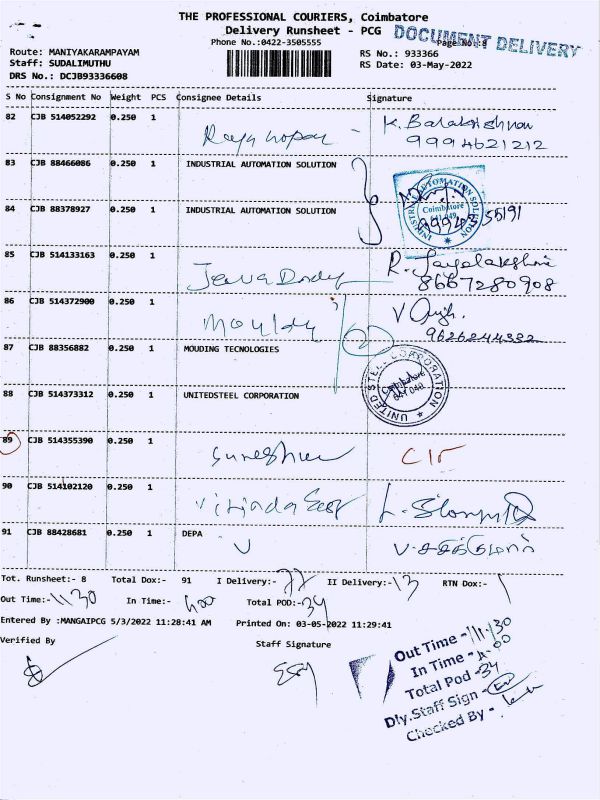 THE PROFESSIONAL COURIERS, Coimbatore
Delivery Runsheet - PCG
DOCUMENT DELIVERY
Phone No.:0422-3505555
Page No.:8
Route: MANIYAKARAMPAYAM
RS No.: 933366
Staff: SUDALIMUTHU
RS Date: 03-May-2022
DRS No.: DCJB93336608
S No Consignment No Weight PCS Consignee Details Signature
82 CJB 514052292 0.250 1 K. Balakrishnan
9994621212
83 CJB 88466086 0.250 1 INDUSTRIAL AUTOMATION SOLUTION
84 CJB 88378927 0.250 1 INDUSTRIAL AUTOMATION SOLUTION
INDUSTRIAL AUTOMATION SOLUTION
Coimbatore
641 049
55191
85 CJB 514133163 0.250 1 R. Jayalakshmi
8667280908
86 CJB 514372900 0.250 1 V
9626244332
2
87 CJB 88356882 0.250 1 MOUDING TECNOLOGIES
88 CJB 514373312 0.250 1 UNITEDSTEEL CORPORATION
UNITED STEEL CORPORATION
Coimbatore
641 048
89 CJB 514355390 0.250 1
90 CJB 514102120 0.250 1
91 CJB 88428681 0.250 1 DEPA
Tot. Runsheet:- 8 Total Dox:- 91 I Delivery:- 77 II Delivery:- 13 RTN Dox:- 1
Out Time:- 11 30 In Time:- Total POD:- 34
Entered By :MANGAIPCG 5/3/2022 11:28:41 AM Printed On: 03-05-2022 11:29:41
Verified By Staff Signature
Out Time - 11:30
In Time -
Total Pod - 34
Dly.Staff Sign -
Checked By -